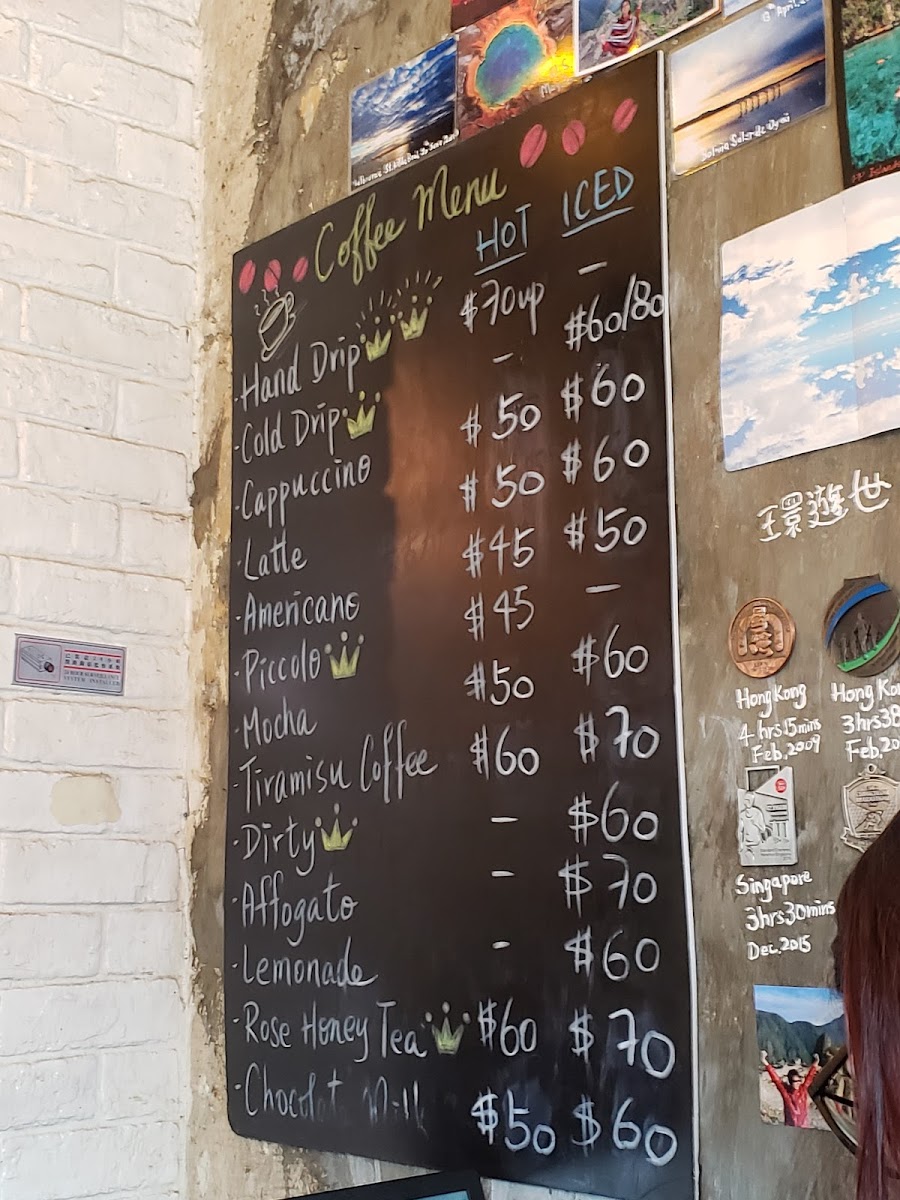 Coffee Menu
HOT ICED
· Hand Drip $70up –
· Cold Drip – $60/80
· Cappuccino $50 $60
· Latte $50 $60
· Americano $45 $50
· Piccolo $45 –
· Mocha $50 $60
· Tiramisu Coffee $60 $70
· Dirty – $60
· Affogato – $70
· Lemonade – $60
· Rose Honey Tea $60 $70
· Chocolat $50 $60
環遊世
HongKong
4 hrs 15mins
Feb. 2009
Hong Ko
3hrs38
Feb. 20
Singapore
3hrs30mins
Dec. 2015
24 HOUR SURVEILLANCE
SYSTEM INSTALLED